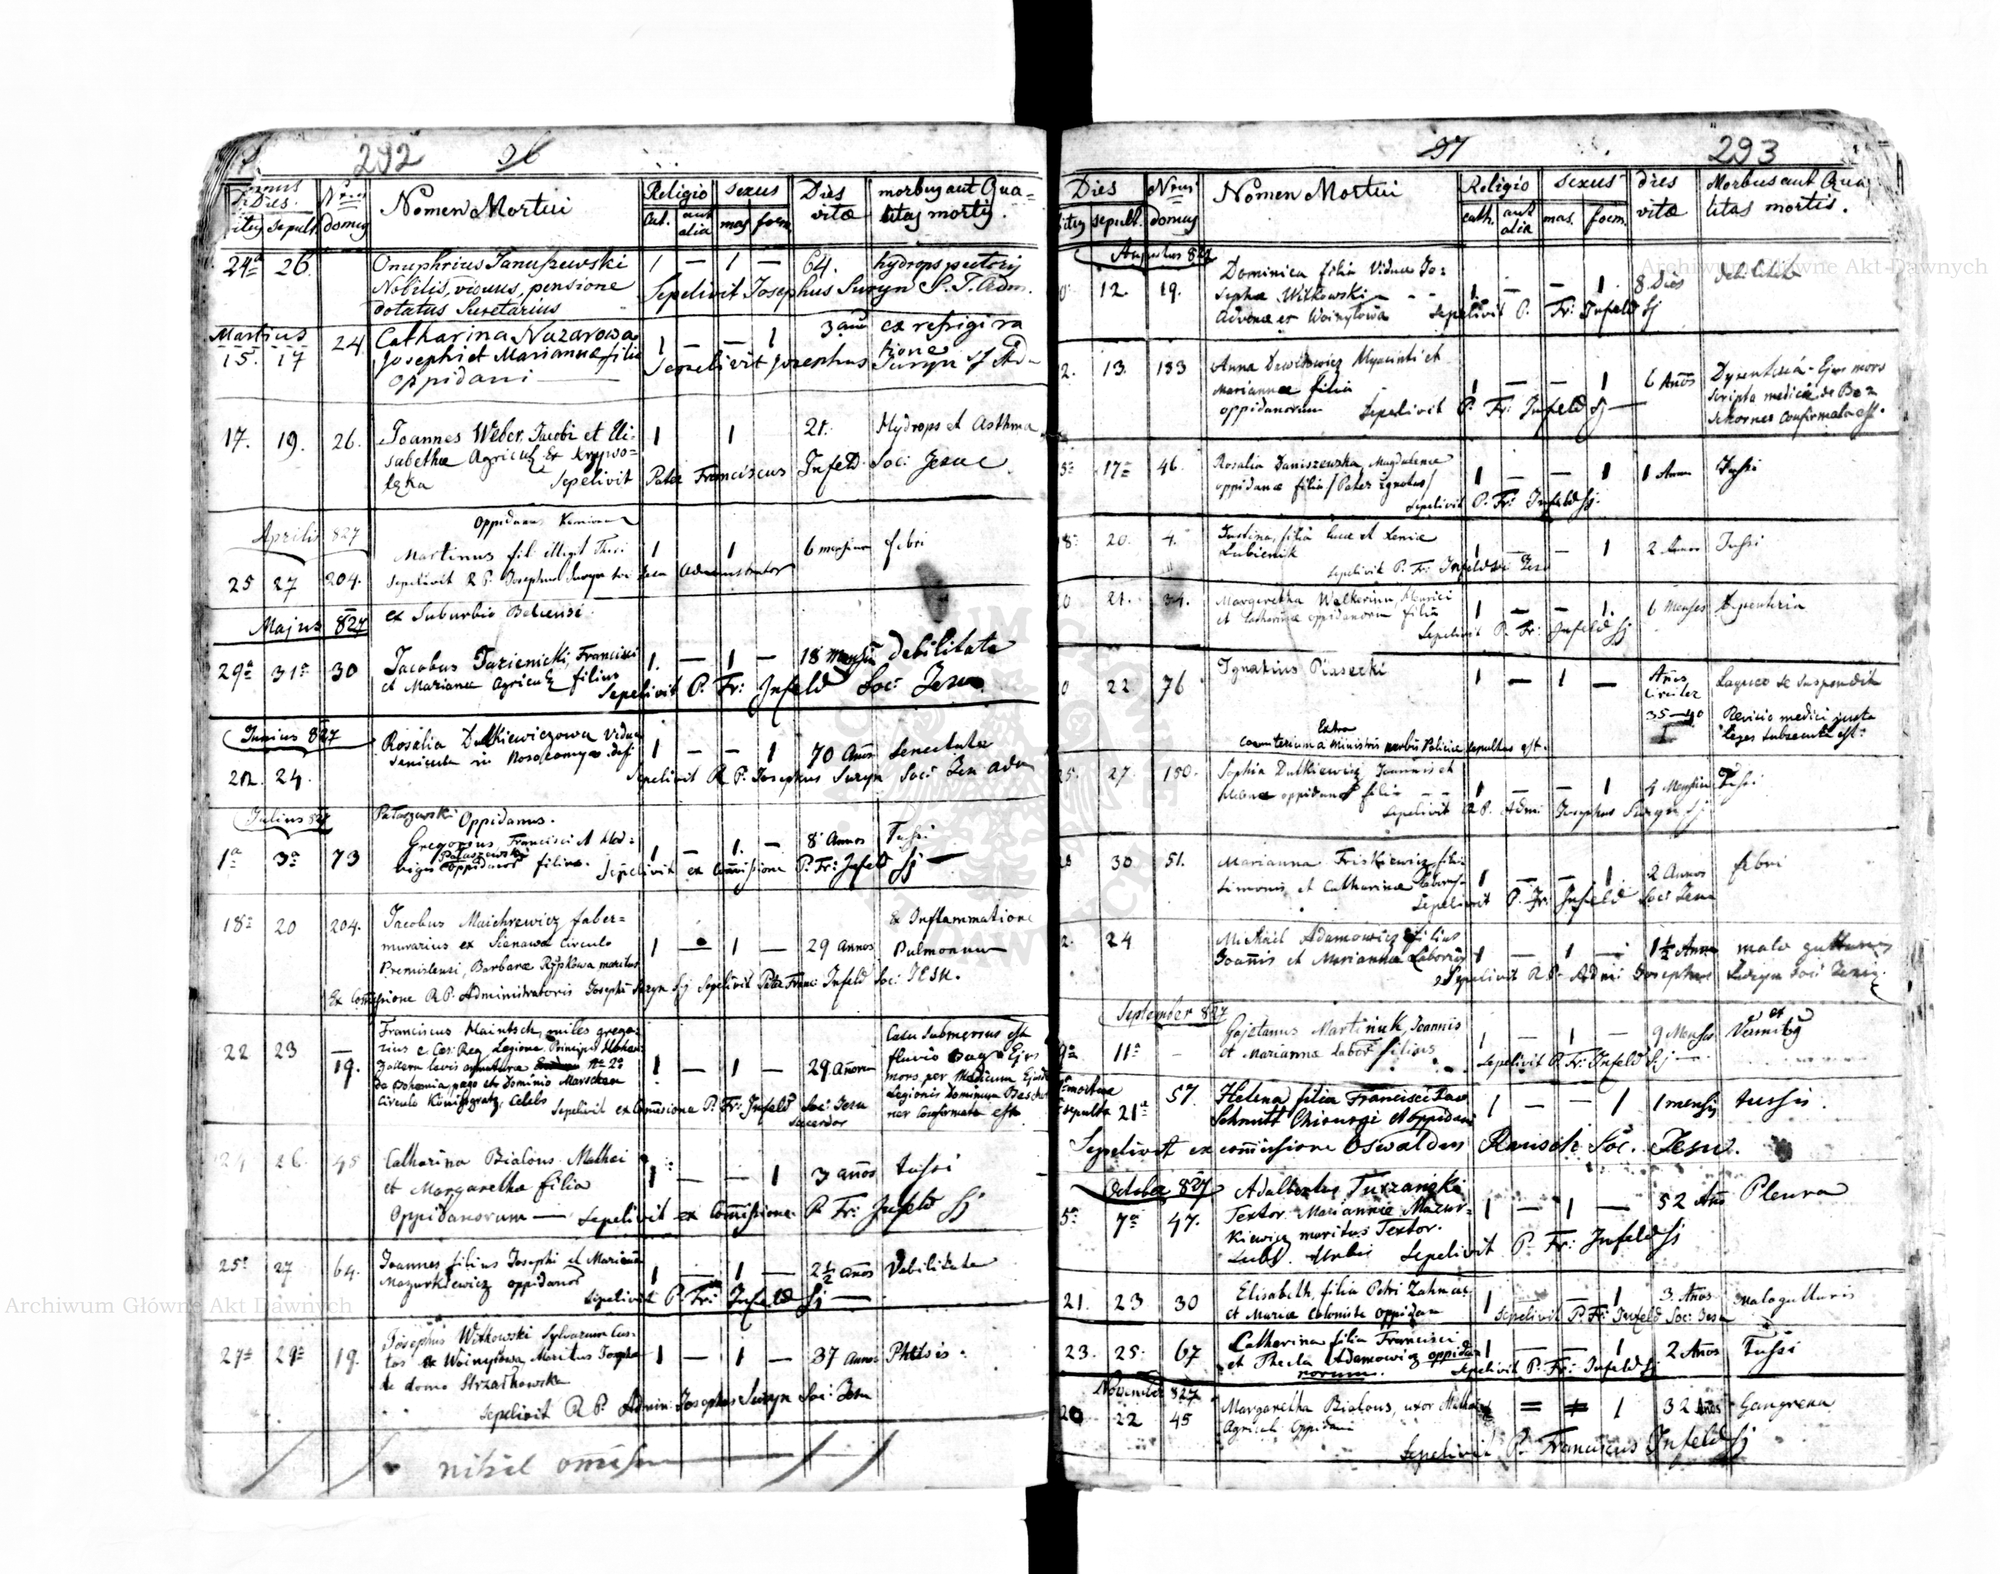 292 96
Dies Nrus Nomen Mortui Religio sexus Dies morbus aut Qua-
sepult. domus cat. aut alia mas foem vitæ litas mortis.
24ª 26. Onuphrius Januszewski 1 — 1 — 64. hydrops pectoris
Nobilis, viduus, pensione Sepelivit Josephus Suryn S. J. Adm.
dotatus Secretarius
Martius
15. 17 24 Catharina Nazarowa 1 — — 1 3 ann ex refrigira
Josephi et Mariannæ filia tione
oppidani Sepelivit Josephus Suryn SJ Ad-
17. 19. 26. Joannes Weber, Jacobi et Eli- 1 1 21. Hydrops et Asthma
sabethæ Agricol. Ex Krzywo-
lęka Sepelivit Pater Franciscus Infeld Soc: Jesu
Aprilis 827 Oppidanus
25 27 204. Martinus fil: illegit 1 1 6 mensium febri
Sepelivit R. P. Josephus Suryn Soc Jesu Administrator
Majus 827 ex Suburbio Belzensi.
29ª 31ª 30 Jacobus Juzienicki, Francisci 1. — 1 — 18 Mensium debilitate
et Marianæ Agricol. filius
Sepelivit P. Fr: Infeld Soc: Jesu
Junius 827
22. 24. Rosalia Dutkiewiczowa Vidua 1 — — 1 70 Años Senectute
Sepelivit R. P. Josephus Suryn Soc: Jesu Adm
Julius 827 Oppidanus.
1ª 3ª 73 Gregorius, Francisci et Hed- 1 — 1. — 8 Annos Tussi
wigis oppidanor filius. Sepelivit ex Comissione P. Fr: Infeld SJ
18ª 20 204. Jacobus Maichrewicz faber- 1 — 1 — 29 Annos Ex Inflammatione
murarius ex Sienawa Circulo Pulmonum
Premislensi, Barbaræ Rypkowa maritus
Ex Comissione R. P. Administratoris Josephi Suryn SJ Sepelivit Pater Franc: Infeld Soc: JESU.
22 23 19. Franciscus Haintsch, miles grega- 1 — 1 — 29 Casu Submersus est
rius e Cæs: Reg Legione Principis Hohen- fluvio Bug Ejus
zollern levis armaturæ No 2º mors per Medicum Ejusd
de Bohemia, pago et Dominio Legionis Dominum
Circulo Königgratz, Celebs Confirmata est
Sepelivit ex Comissione P. Fr: Infeld Soc: Jesu
Sacerdos
24 26. 45 Catharina Bialous Mathei 1 — — 1 3 años tussi
et Margarethæ filia
Oppidanorum — Sepelivit ex Comissione P. Fr: Infeld SJ
25ª 27 64. Joannes filius Josephi et Mariannæ 1 — 1 — 2½ años Debilitate
Mazurkiewicz oppidanor
Sepelivit P. Fr: Infeld SJ —
27ª 29ª 19. Josephus Witkowski Sylvarum Cus- 1 — 1 — 37 Annos Phtisis.
tos de Woinylowa, Maritus Josepha
de domo Strzałkowska
Sepelivit R P. Admin: Josephus Suryn Soc: Jesu
nihil omissum
97 293
Dies Nrus Nomen Mortui Religio sexus dies Morbus aut Qua
sepult. domus cath. aut alia mas. foem. vitæ litas mortis.
Augustus 827
12. 19. Dominica filia Vidua Jo- 1 — — 1. 8 Dies debilitate
sepha Witkowski — - -
Advena ex Woinylowa Sepelivit P. Fr: Infeld SJ
13. 183 Anna Dawidowicz Hyacinti et 1 — — 1 6 Años Dysenteria - Ejus mors
Mariannæ filia scripto medici
oppidanorum Sepelivit P. Fr: Infeld SJ Confirmata est.
17ª 46. Rosalia Daniszewska, Magdalenæ 1 — — 1 1 Ann Tussi
oppidanæ filia /Pater ignotus/
Sepelivit P. Fr: Infeld SJ.
18ª 20. 4. Justina, filia Lucæ et Xeniæ 1 — — 1 2 Annos Tussi
Lubienik
Sepelivit P. Fr: Infeld Soc Jesu
21. 34. Margaretha Walkerinn, 1 — — 1. 6 Menses Dysenteria
et Catharinæ oppidanorum filia
Sepelivit P. Fr: Infeld SJ
22 76 Ignatius Piasecki 1 — 1 — Años Laqueo se suspendit
circiter
35—40 Revisio medici juxta
Extra Leges subsecuta est.
Coemiterium a ministris Policiæ sepultus est.
25. 27. 150. Sophia Dutkiewicz Joannis et 1 — — 1 4 Mensium Tussi
Helenæ oppidanor filia - -
Sepelivit R P. Admi. Josephus Suryn SJ
30 51. Marianna Friskiewicz, filia 1 — — 1. 2 Annos febri
Simonis et Catharinæ
Sepelivit P. Fr: Infeld Soc: Jesu
24 Michael Adamowicz filius 1 — 1 — 1½ Annos malo gutturis
Joannis et Mariannæ Laborios
Sepelivit R. P. Admi: Josephus Suryn Soc: Jesu.
September 827
9ª 11ª - Gajetanus Martiniuk, Joannis 1 — 1 — 9 Menses Vomitus
et Marianna Labor filius
Sepelivit P. Fr: Infeld SJ —
mortua 57. Helena filia Francisci 1 — — 1 1 mensis tussis.
sepulta 21ª Schmitt Chirurgi et oppidani
Sepelivit ex comissione Oswaldus Rausch Soc. Jesu.
October 827
5ª 7ª 47. Adalbertus Tuszanski 1 — 1 — 52 Añ Pleura
Textor Mariannæ Mazur-
kiewicz maritus Textor.
Sepelivit P. Fr: Infeld SJ
21. 23 30 Elisabeth, filia Petri 1 — — 1 3 Años malo gutturis
et Mariæ Coloniste oppidan
Sepelivit P. Fr: Infeld Soc: Jesu
23. 25. 67 Catharina filia Francisci 1 — — 1 2 Años Tussi
et Thecla Adamowicz oppida-
norum. Sepelivit P. Fr: Infeld SJ
November 827
20 22 45 Margaretha Bialous, uxor Mathæi 1 = = 1 32 Años Gangrena
Agricol. Oppidani
Sepelivit P. Franciscus Infeld SJ
Archiwum Główne Akt Dawnych
Archiwum Główne Akt Dawnych